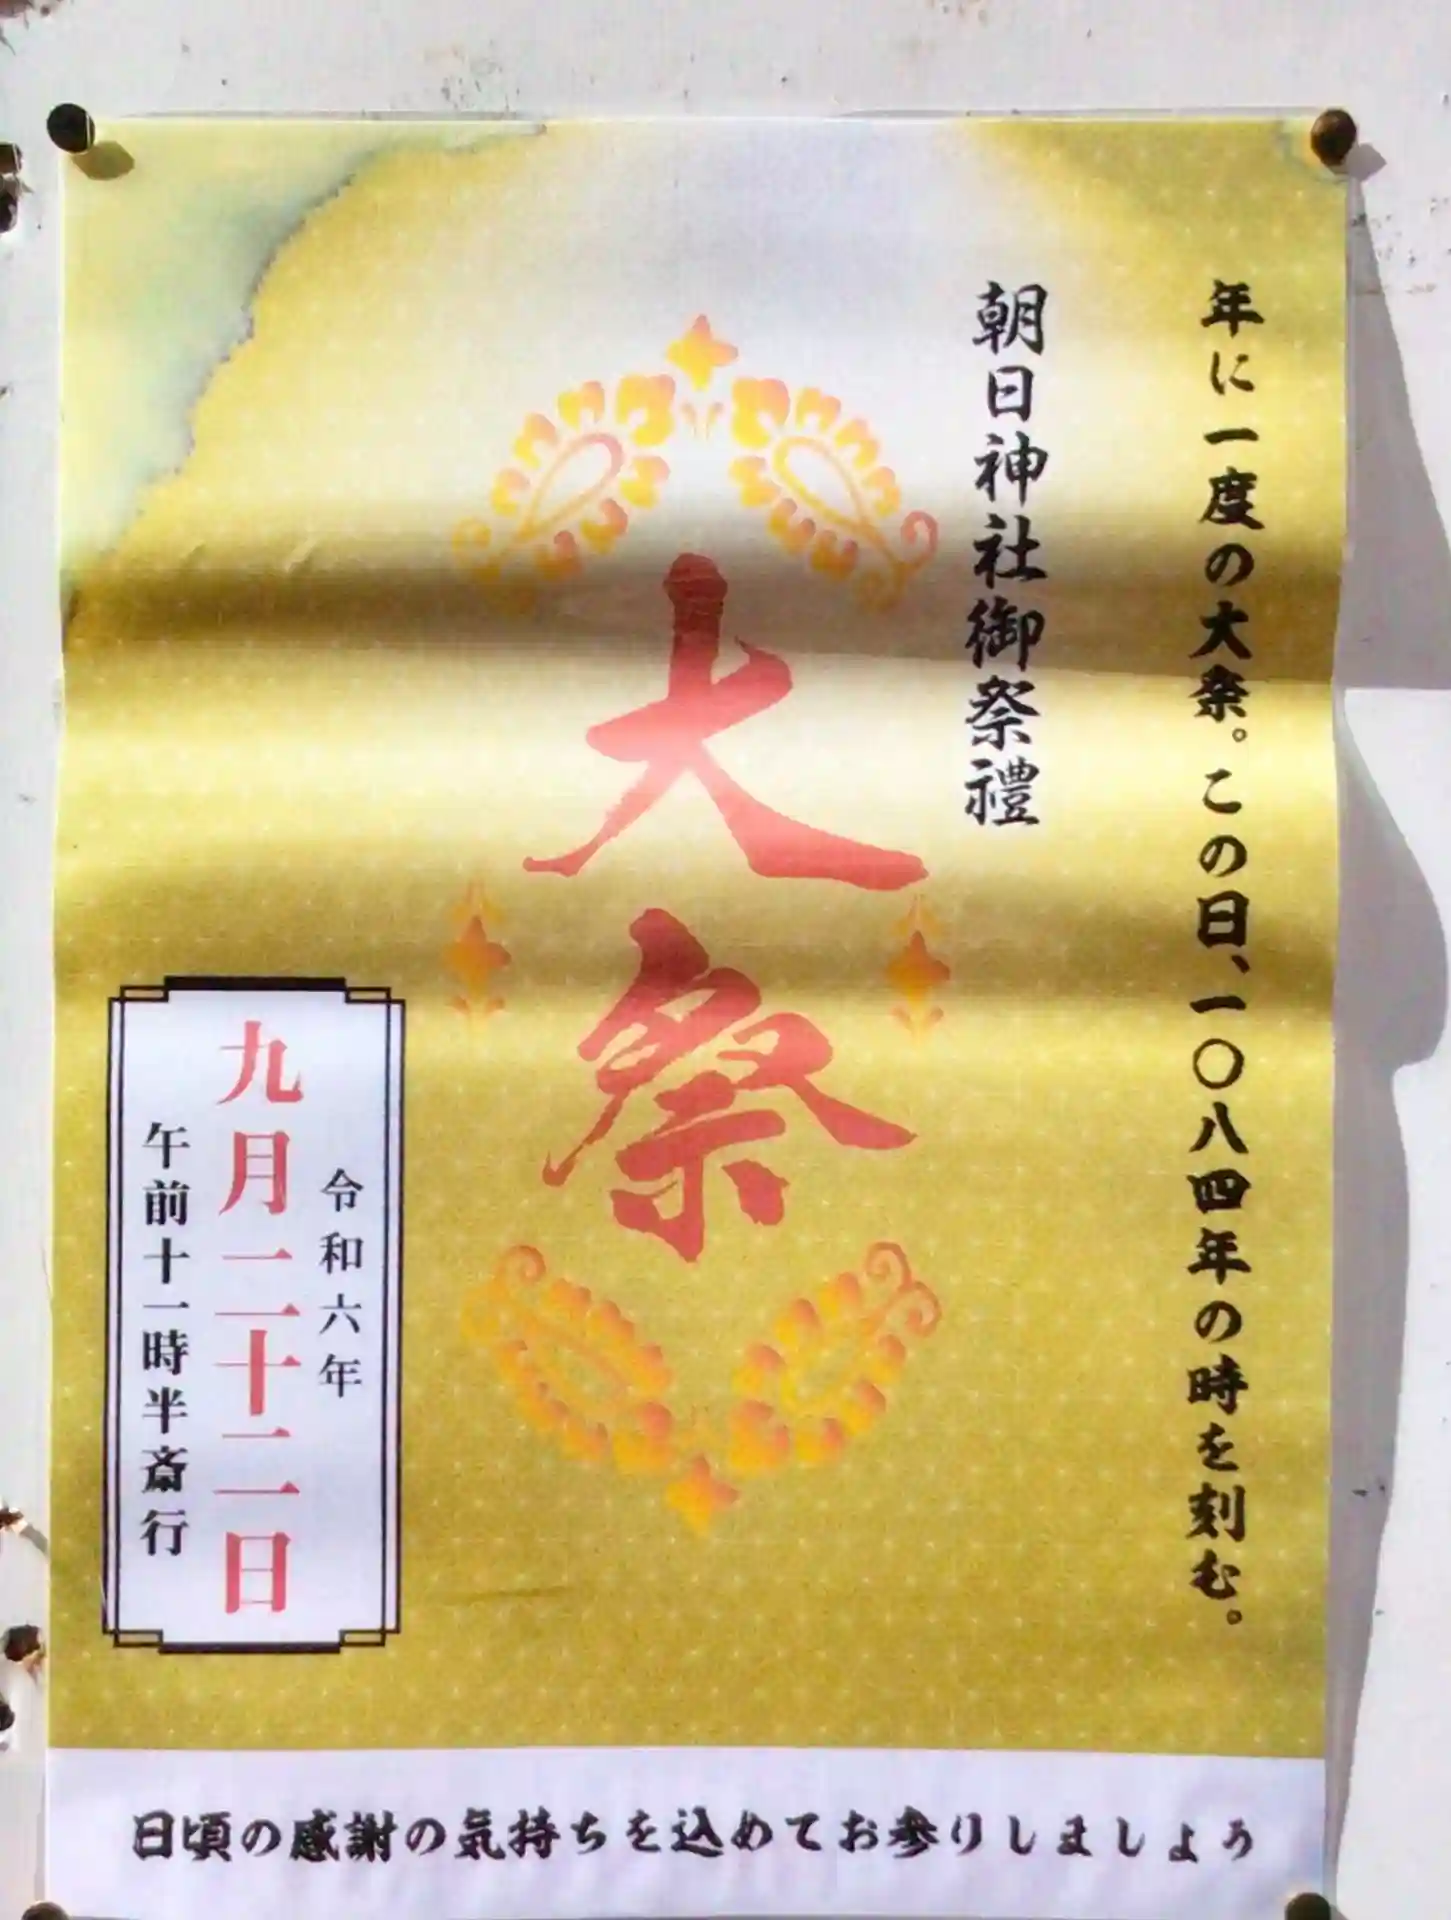 年に一度の大祭。この日、一〇八四年の時を刻む。
朝日神社御祭禮
大祭
令和六年
九月二十二日
午前十一時半斎行
日頃の感謝の気持ちを込めてお参りしましょう